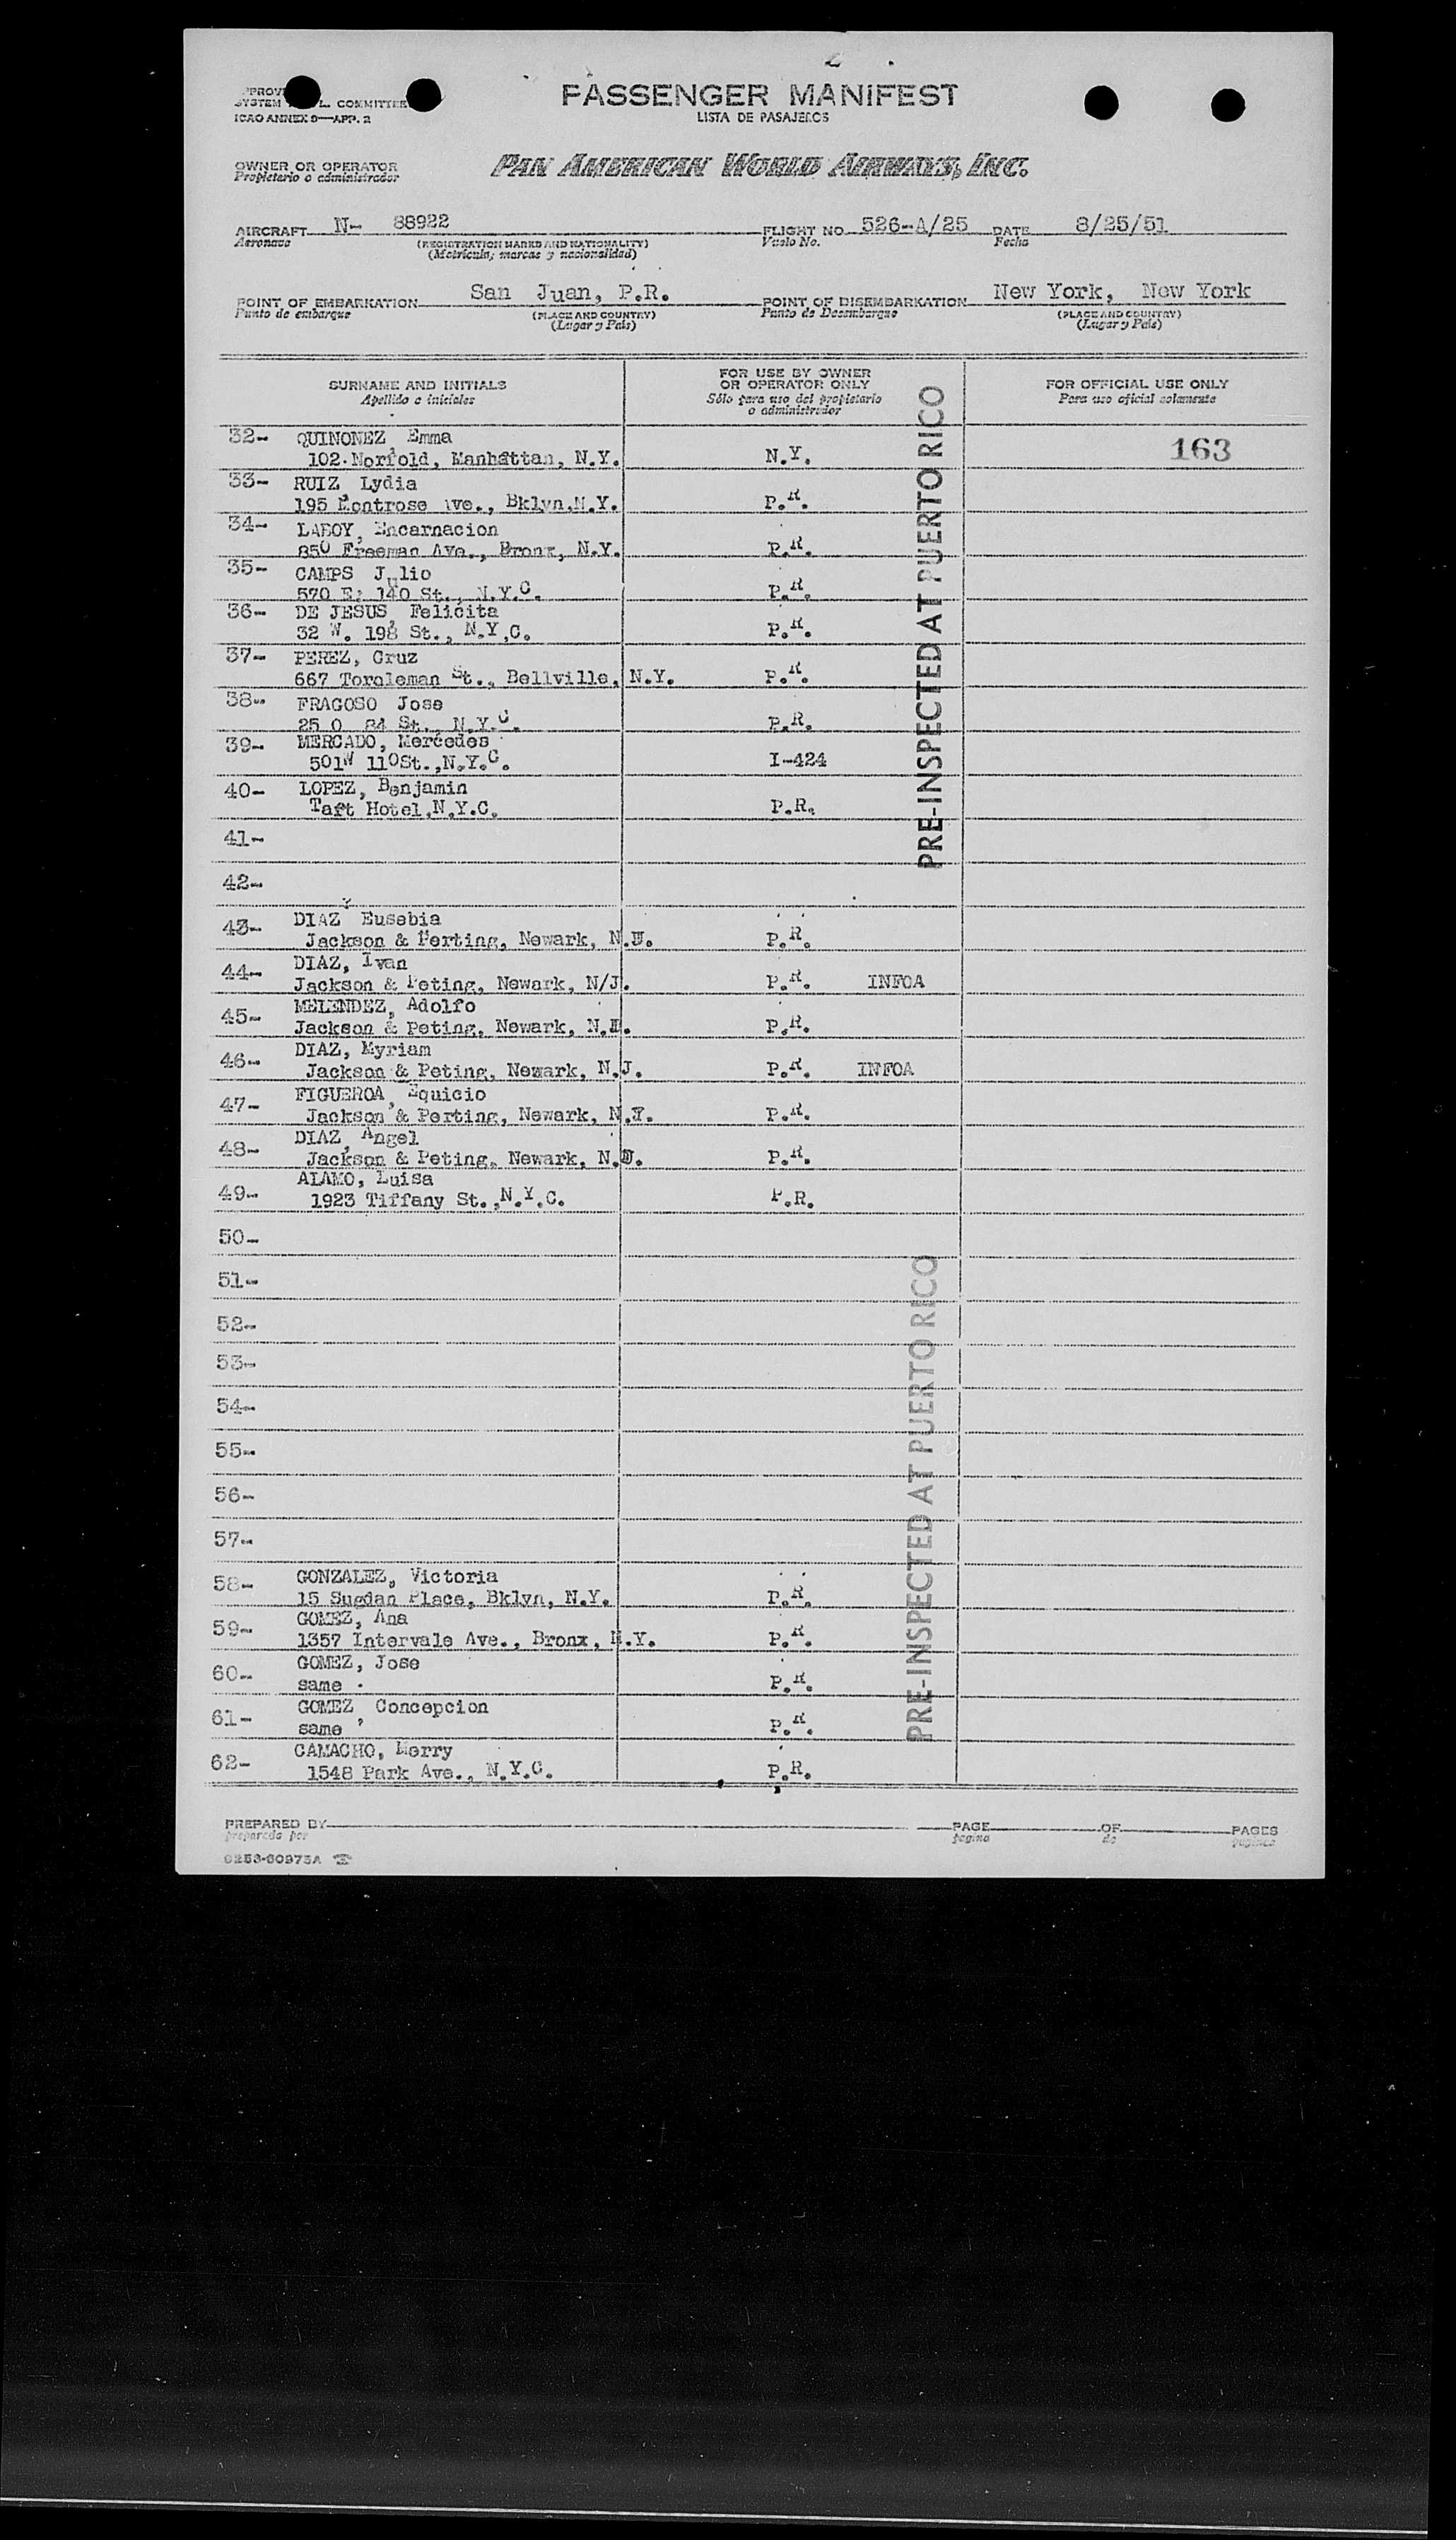 2
APPROV
SYSTEM L. COMMITTEE
ICAO ANNEX 9—APP. 2
PASSENGER MANIFEST
LISTA DE PASAJEROS
OWNER OR OPERATOR
Propietario o administrador
PAN AMERICAN WORLD AIRWAYS, INC.
AIRCRAFT N- 88922 FLIGHT NO. 526-A/25 DATE 8/25/51
Aeronave (REGISTRATION MARKS AND NATIONALITY) Vuelo No. Fecha
(Matricula, marcas y nacionalidad)
POINT OF EMBARKATION San Juan, P.R. POINT OF DISEMBARKATION New York, New York
Punto de embarque (PLACE AND COUNTRY) Punto de Desembarque (PLACE AND COUNTRY)
(Lugar y País) (Lugar y País)
SURNAME AND INITIALS
Apellido e iniciales
FOR USE BY OWNER
OR OPERATOR ONLY
Sólo para uso del propietario
o administrador
FOR OFFICIAL USE ONLY
Para uso oficial solamente
163
PRE-INSPECTED AT PUERTO RICO
32- QUINONEZ, Emma
102 Norfold, Manhattan, N.Y. N.Y.
33- RUIZ, Lydia
195 Montrose Ave., Bklyn,N.Y. P.R.
34- LABOY, Encarnacion
850 Freeman Ave., Bronx, N.Y. P.R.
35- CAMPS Julio
570 E. 140 St., N.Y.C. P.R.
36- DE JESUS, Felicita
32 W. 198 St., N.Y,C. P.R.
37- PEREZ, Cruz
667 Toroleman St., Bellville, N.Y. P.R.
38- FRAGOSO Jose
25 O 84 St., N.Y.C. P.R.
39- MERCADO, Mercedes
501W 110St.,N.Y.C. I-424
40- LOPEZ, Benjamin
Taft Hotel,N.Y.C. P.R.
41-
42-
43- DIAZ Eusebia
Jackson & Perting, Newark, N.J. P.R.
44- DIAZ, Ivan
Jackson & Peting, Newark, N/J. P.R. INFOA
45- MELENDEZ, Adolfo
Jackson & Peting, Newark, N.J. P.R.
46- DIAZ, Myriam
Jackson & Peting, Newark, N.J. P.R. INFOA
47- FIGUEROA, Equicio
Jackson & Perting, Newark, N.Y. P.R.
48- DIAZ, Angel
Jackson & Peting, Newark, N.J. P.R.
49- ALAMO, Luisa
1923 Tiffany St.,N.Y.C. P.R.
50-
51-
52-
53-
54-
55-
56-
57-
PRE-INSPECTED AT PUERTO RICO
58- GONZALEZ, Victoria
15 Sugdan Place, Bklyn, N.Y. P.R.
59- GOMEZ, Ana
1357 Intervale Ave., Bronx, N.Y. P.R.
60- GOMEZ, Jose
same P.R.
61- GOMEZ, Concepcion
same P.R.
62- CAMACHO, Merry
1548 Park Ave., N.Y.C. P.R.
PREPARED BY PAGE OF PAGES
preparado por página de páginas
0253-60973A